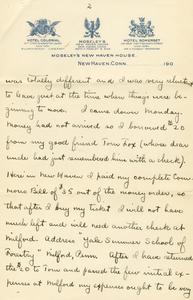 2
HOTEL COLONIAL
MOSELEY'S
HOTEL SOMERSET
MOSELEY'S NEW HAVEN HOUSE.
NEW HAVEN, CONN. 190
was totally different and I was very reluctant
to leave just at the time when things were be-
ginning to move. I came down Monday.
Money had not arrived so I borrowed $20
from my good friend Tom Fox (whose dear
uncle had just remembered him with a check).
Here in New Haven I paid my complete Com-
mons Bill of $5 out of the money orders, so
that after I buy my ticket I will not have
much left and will need another check at
Milford. Address Yale Summer School of
Forestry Milford, Penn. After I have returned
the $20 to Tom and passed the few initial expen-
ses at Milford my expenses ought to be very